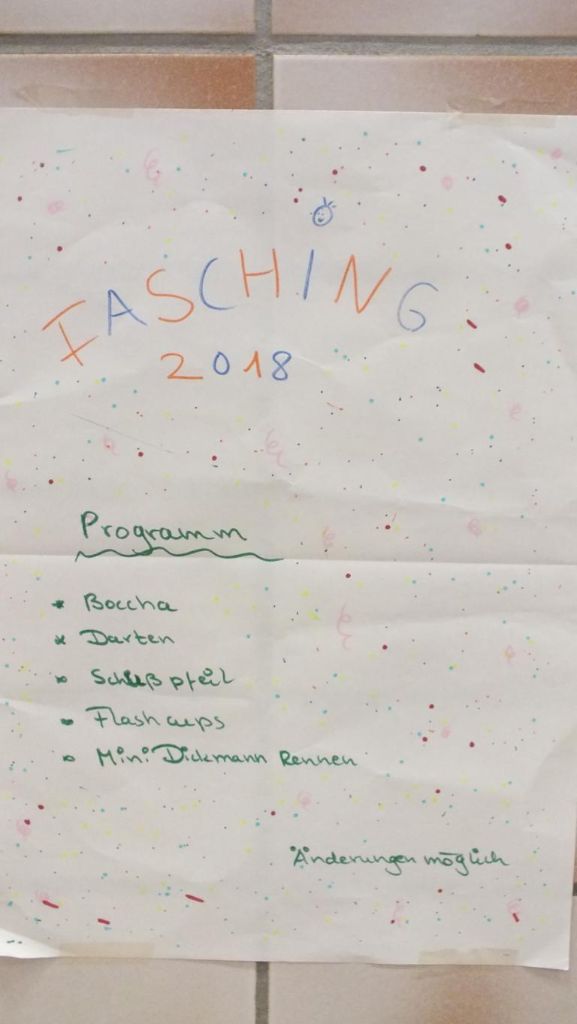 FASCHING
2018
Programm
* Boccha
* Darten
* Schußpfeil
• Flashcups
• Mini Dickmann Rennen
Änderungen möglich